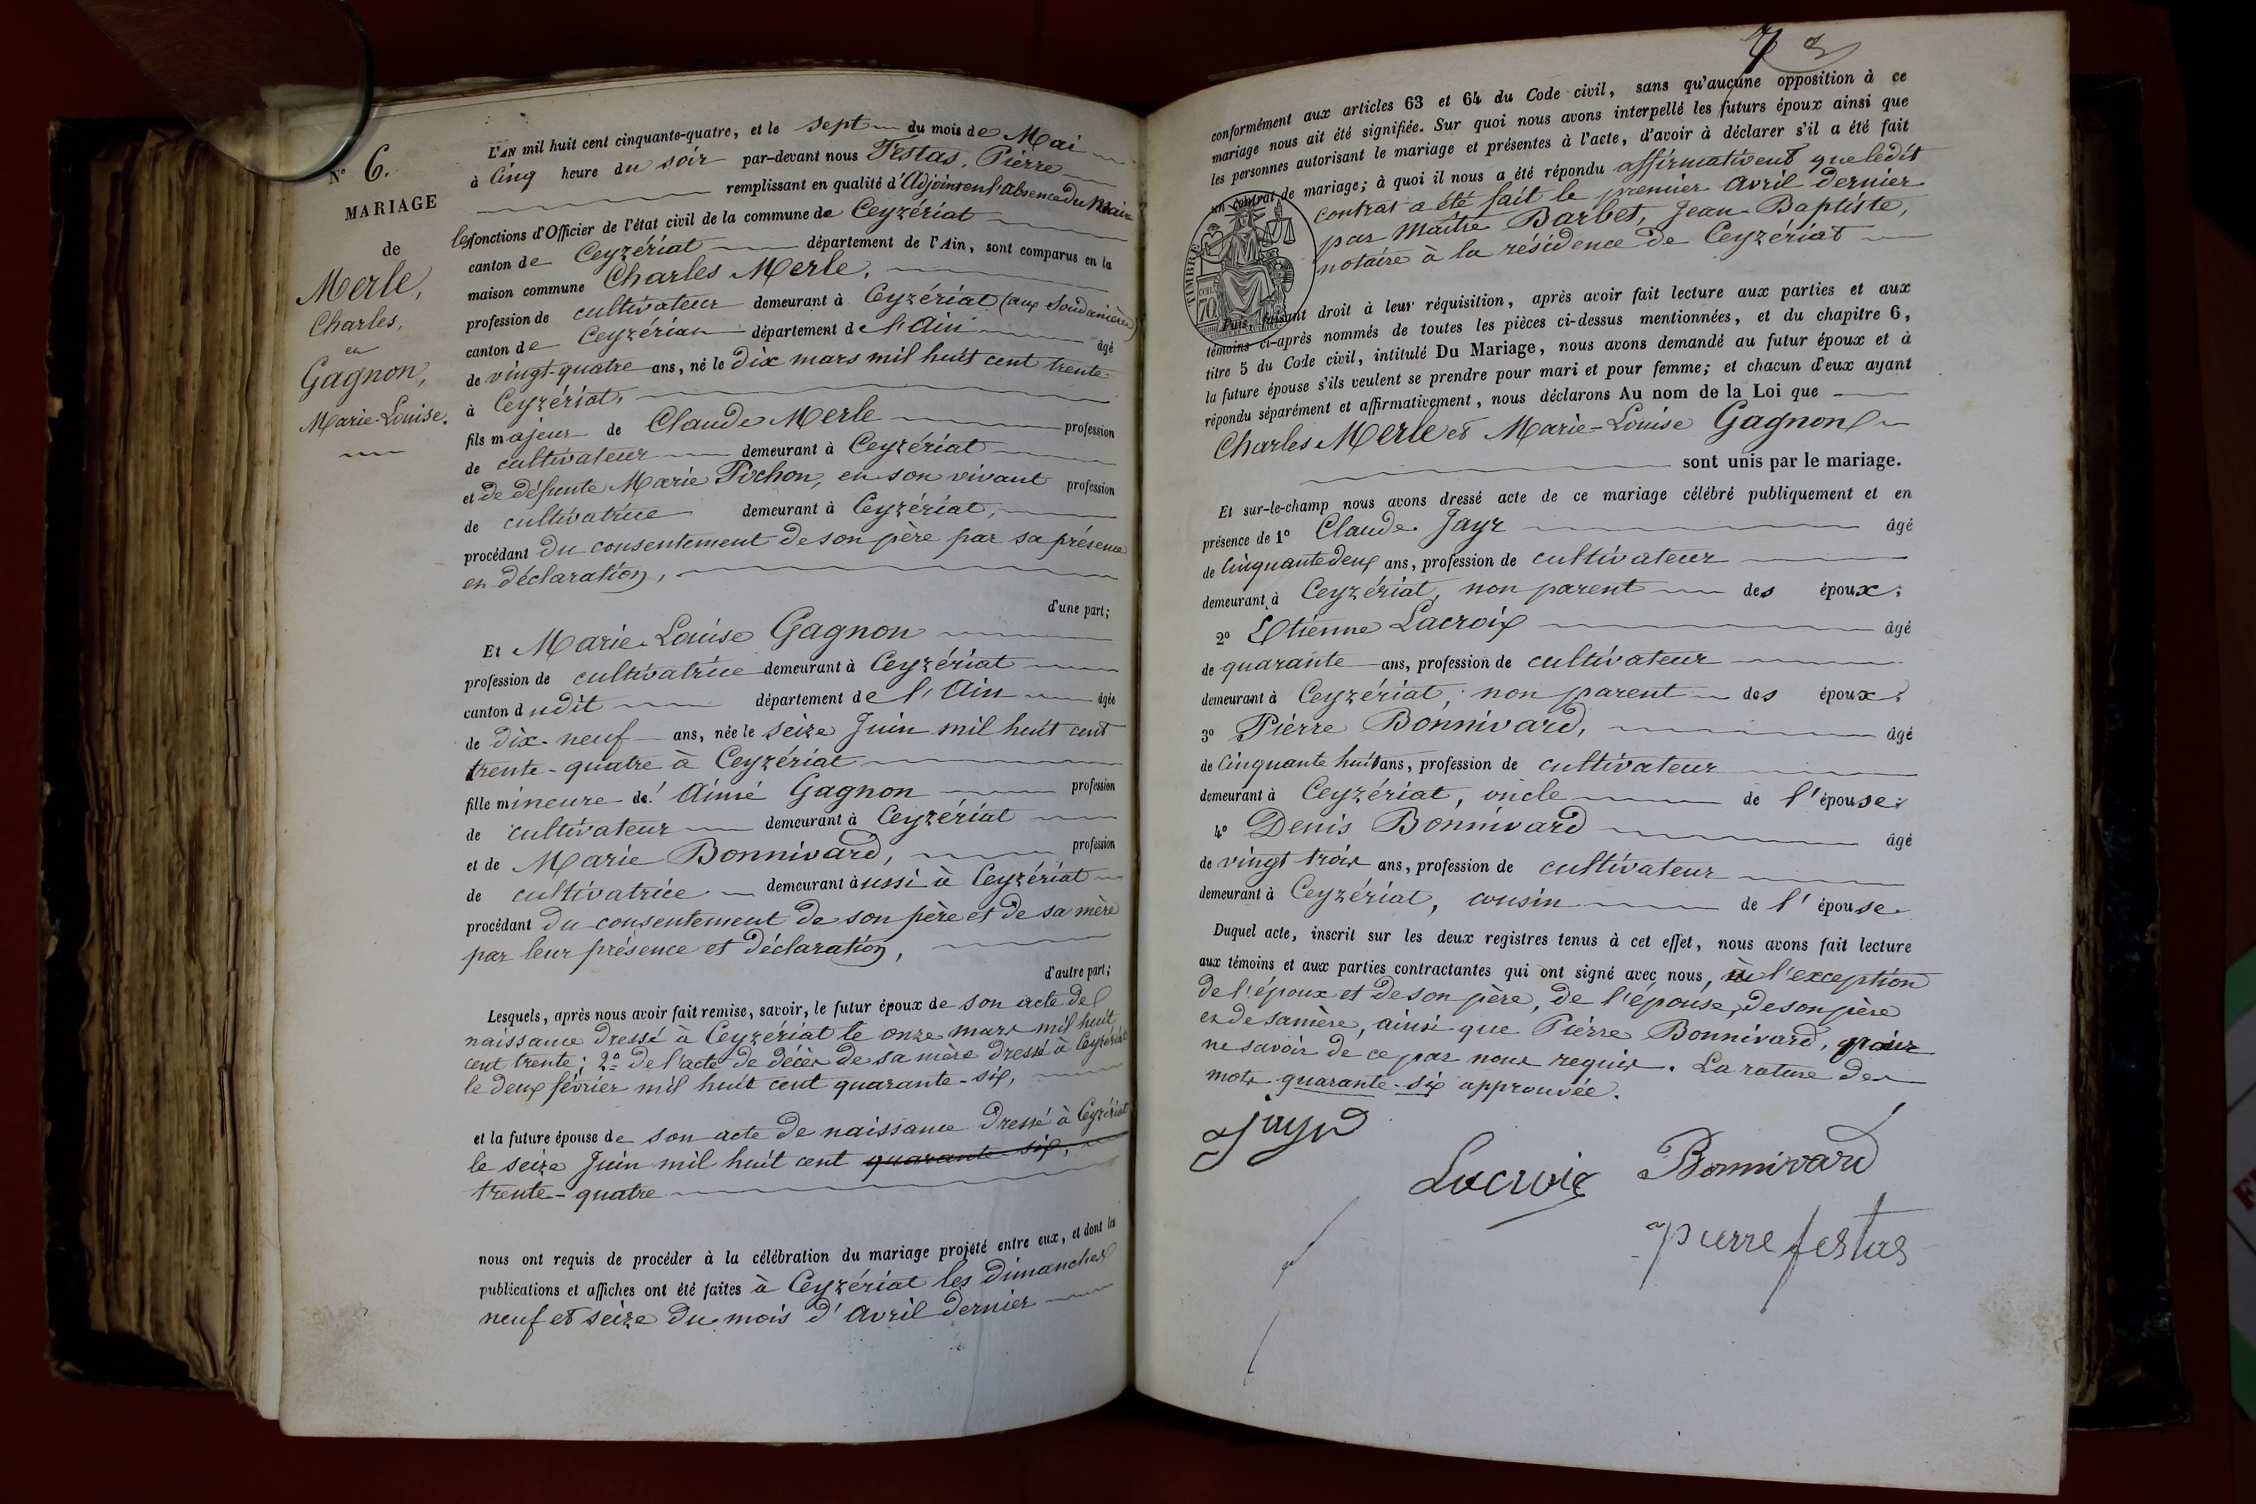 N° 6.
MARIAGE
de
Merle,
Charles,
et
Gagnon,
Marie-Louise.
L'AN mil huit cent cinquante-quatre, et le sept du mois de Mai
à Cinq heure du soir par-devant nous Festas, Pierre
remplissant en qualité d'Adjoint en l'absence du Maire
les fonctions d'Officier de l'état civil de la commune de Ceyzériat
canton de Ceyzériat département de l'Ain, sont comparus en la
maison commune Charles Merle,
profession de cultivateur demeurant à Ceyzériat (aux Soudanières)
canton de Ceyzériat département de l'Ain âgé
de vingt-quatre ans, né le Dix mars mil huit cent trente
à Ceyzériat,
fils majeur de Claude Merle profession
de cultivateur demeurant à Ceyzériat
et de défunte Marie Pochon, en son vivant profession
de cultivatrice demeurant à Ceyzériat,
procédant du consentement de son père par sa présence
et déclaration,
d'une part;
Et Marie-Louise Gagnon
profession de cultivatrice demeurant à Ceyzériat
canton dudit département de l'Ain âgée
de dix-neuf ans, née le seize Juin mil huit cent
trente-quatre à Ceyzériat
fille mineure de Aimé Gagnon profession
de cultivateur demeurant à Ceyzériat
et de Marie Bonnivard, profession
de cultivatrice demeurant aussi à Ceyzériat
procédant du consentement de son père et de sa mère
par leur présence et déclaration,
d'autre part;
Lesquels, après nous avoir fait remise, savoir, le futur époux de son acte de
naissance dressé à Ceyzériat le onze mars mil huit
cent trente; 2° de l'acte de décès de sa mère dressé à Ceyzériat
le deux février mil huit cent quarante-six,
et la future épouse de son acte de naissance dressé à Ceyzériat
le seize Juin mil huit cent quarante-six,
trente-quatre
nous ont requis de procéder à la célébration du mariage projeté entre eux, et dont les
publications et affiches ont été faites à Ceyzériat les dimanches
neuf et seize du mois d'Avril dernier
conformément aux articles 63 et 64 du Code civil, sans qu'aucune opposition à ce
mariage nous ait été signifiée. Sur quoi nous avons interpellé les futurs époux ainsi que
les personnes autorisant le mariage et présentes à l'acte, d'avoir à déclarer s'il a été fait
un contrat de mariage; à quoi il nous a été répondu affirmativement que ledit
contrat a été fait le premier avril dernier
par Maître Barbet, Jean-Baptiste,
notaire à la résidence de Ceyzériat
TIMBRE
70
Puis, faisant droit à leur réquisition, après avoir fait lecture aux parties et aux
témoins ci-après nommés de toutes les pièces ci-dessus mentionnées, et du chapitre 6,
titre 5 du Code civil, intitulé Du Mariage, nous avons demandé au futur époux et à
la future épouse s'ils veulent se prendre pour mari et pour femme; et chacun d'eux ayant
répondu séparément et affirmativement, nous déclarons Au nom de la Loi que
Charles Merle et Marie-Louise Gagnon
sont unis par le mariage.
Et sur-le-champ nous avons dressé acte de ce mariage célébré publiquement et en
présence de 1° Claude Jayr âgé
de Cinquante deux ans, profession de cultivateur
demeurant à Ceyzériat, non parent des époux;
2° Etienne Lacroix âgé
de quarante ans, profession de cultivateur
demeurant à Ceyzériat, non parent des époux;
3° Pierre Bonnivard, âgé
de Cinquante huit ans, profession de cultivateur
demeurant à Ceyzériat, oncle de l'épouse;
4° Denis Bonnivard âgé
de vingt trois ans, profession de cultivateur
demeurant à Ceyzériat, cousin de l'épouse.
Duquel acte, inscrit sur les deux registres tenus à cet effet, nous avons fait lecture
aux témoins et aux parties contractantes qui ont signé avec nous, à l'exception
de l'époux et de son père, de l'épouse, de son père
et de sa mère, ainsi que Pierre Bonnivard, pour
ne savoir de ce par nous requis. La rature des
mots quarante-six approuvée.
Jayr
Lacroix Bonnivard
pierre festas